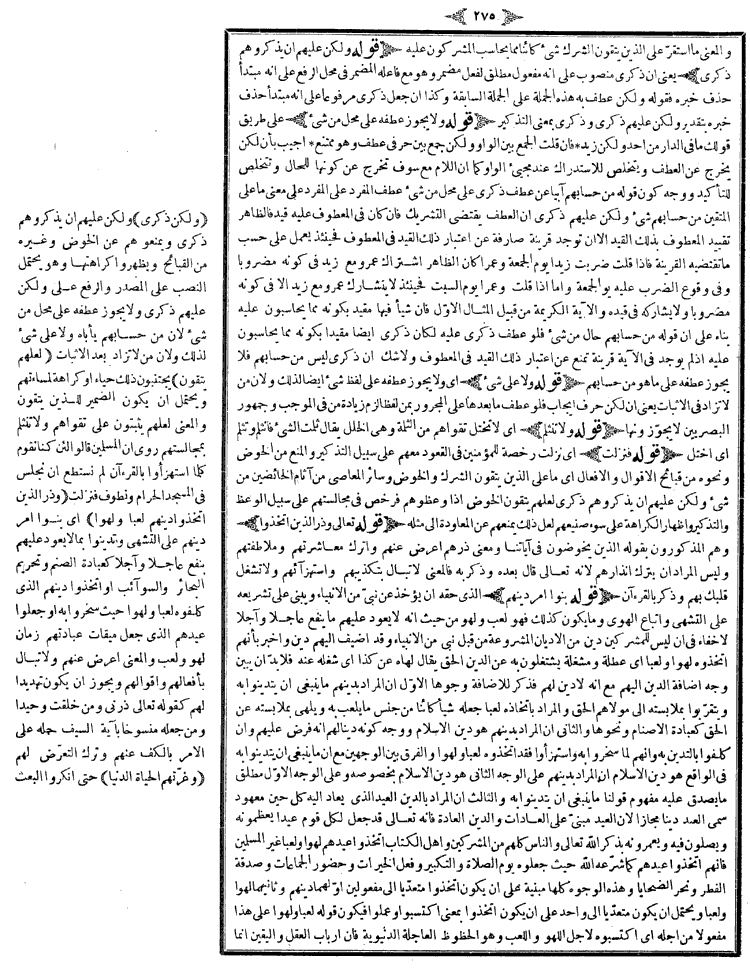 ٢٧٥
والمعنى ما استقر على الذين يتقون الشرك شئ كائنا مما يحاسب المشركون عليه قوله ولكن عليهم ان يذكروهم
ذكرى يعنى ان ذكرى منصوب على انه مفعول مطلق لفعل مضمر وهو مع فاعله المضمر فى محل ارفع على انه مبتدأ
حذف خبره فقوله ولكن عطف به هذه الجملة على الجملة السابقة وكذا ان جعل ذكرى مرفوعا على انه مبتدأ حذف
خبره بتقدير ولكن عليهم ذكرى وذكرى بمعنى التذكير قوله ولا يجوز عطفه على محل من شئ على طريق
قولك ما فى الدار من احد ولكن زيد * فان قلت الجمع بين الواو ولكن جمع بين حرفى عطف وهو ممتنع * اجيب بأن لكن
يخرج عن العطف ويتخلص للاستدراك عند مجيئ الواو كما ان اللام مع سوف تخرج عن كونها للحال وتتخلص
للتأكيد ووجه كون قوله من حسابهم آبيا عن عطف ذكرى على محل من شئ عطف المفرد على المفرد على معنى ما على
المتقين من حسابهم شئ ولكن عليهم ذكرى ان العطف يقتضى التشريك فان كان فى المعطوف عليه قيد فالظاهر
تقييد المعطوف بذلك القيد الا ان توجد قرينة صارفة عن اعتبار ذلك القيد فى المعطوف فحينئذ يعمل على حسب
ما تقتضيه القرينة فاذا قلت ضربت زيدا يوم الجمعة وعمرا كان الظاهر اشتراك عمرو مع زيد فى كونه مضروبا
وفى وقوع الضرب عليه يو الجمعة واما اذا قلت وعمرا يوم السبت فحينئذ لا يتشارك عمرو مع زيد الا فى كونه
مضروبا ولا يشاركه فى قيده والآية الكريمة من قبيل المثال الاوّل فان شيأ فيها مقيد بكونه مما يحاسبون عليه
بناء على ان قوله من حسابهم حال من شئ فلو عطف ذكرى عليه لكان ذكرى ايضا مقيدا بكونه مما يحاسبون
عليه اذلم يوجد فى الآية قرينة تمنع عن اعتبار ذلك القيد فى المعطوف ولا شك ان ذكرى ليس من حسابهم فلا
يجوز عطفه على ما هو من حسابهم قوله ولا على شئ اى ولا يجوز عطفه على لفظ شئ ايضا لذلك ولان من
لا تزاد فى الاثبات يعنى ان لكن حرف ايجاب فلو عطف ما بعدها على المجرور بمن لفظا لزم زيادة من فى الموجب وجمهور
البصريين لا يجوّزونها قوله ولا تنثلم اى لا تختل تقواهم من الثلمة وهى الخلل يقال ثلمت الشئ فانثلم وتثلم
اى اختل قوله فنزلت اى نزلت رخصة للمؤمنين فى القعود معهم على سبيل التذكير والمنع من الخوض
ونحوه من قبائح الاقوال والافعال اى ما على الذين يتقون الشرك والخوض وسائر المعاصى من آثام الخائضين من
شئ ولكن عليهم ان يذكروهم ذكرى لعلهم يتقون الخوض اذا وعظوهم فرخص فى مجالستهم على سبيل الوعظ
والتذكير واظهار الكراهة على سوء صنيعهم لعل ذلك يمنعهم عن المعاودة الى مثله قوله تعالى وذر الذين اتخذوا
وهم المذكورون بقوله الذين يخوضون فى آياتنا ومعنى ذرهم اعرض عنهم واترك معاشرتهم وملاطفتهم
وليس المراد ان يترك انذارهم لانه تعالى قال بعده وذكر به فالمعنى لا تبال بتكذيبهم واستهزآئهم ولا تشغل
قلبك بهم وذكر بالقرءآن قوله بنوا امر دينهم الذى حقه ان يؤخذ عن نبىّ من الانبياء ويبنى على تشريعه
على التشهى واتباع الهوى وما يكون كذلك فهو لعب ولهو من حيث انه لا يعود عليهم ما ينفع عاجلا وآجلا
لا خفاء فى ان ليس للمشركين دين من الاديان المشروعة من قبل نبى من الانبياء وقد اضيف اليهم دين واخبر بأنهم
اتخذوه لهوا ولعبا اى عطلة ومشغلة يشتغلون به عن الدين الحق يقال لهاه عن كذا اى شغله عنه فلا بد ان يبين
وجه اضافة الدين اليهم مع انه لا دين لهم فذكر للاضافة وجوها الاوّل ان المراد بدينهم ما ينبغى ان يتدينوا به
ويتقربوا بملابسته الى مولاهم الحق والمراد باتخاذه لعبا جعله شيأ كائنا من جنس ما يلعب به ويلهى بملابسته عن
الحق كعبادة الاصنام ونحوها والثانى ان المراد بدينهم هو دين الاسلام ووجه كونه دينا لهم انه فرض عليهم وان
كلفوا بالتدين به وانهم لما سخروا به واستهزأوا فقد اتخذوه لعبا ولهوا والفرق بين الوجهين مع ان ما ينبغى ان يتدينوا به
فى الواقع هو دين الاسلام ان المراد بدينهم على الوجه الثانى هو دين الاسلام بخصوصه وعلى الوجه الاوّل مطلق
ما يصدق عليه مفهوم قولنا ما ينبغى ان يتدينوا به والثالث ان المراد بالدين العيد الذى يعاد اليه كل حين معهود
سمى العيد دينا مجازا لان العيد مبنىّ على العادات والدين العادة فانه تعالى قد جعل لكل قوم عيدا يعظمونه
ويصلون فيه ويعمرونه بذكر الله تعالى والناس كلهم من المشركين واهل الكتاب اتخذوا عيدهم لهوا ولعبا غير المسلمين
فانهم اتخذوا عيدهم كما شرّعه الله حيث جعلوه يوم الصلاة والتكبير وفعل الخيرات وحضور الجماعات وصدقة
الفطر ونحر الضحايا وهذه الوجوه كلها مبنية على ان يكون اتخذوا متعدّيا الى مفعولين اوّلهما دينهم وثانيهما لهوا
ولعبا ويحتمل ان يكون متعدّيا الى واحد على ان يكون اتخذوا بمعنى اكتسبوا وعملوا فيكون قوله لعبا ولهوا على هذا
مفعولا من اجله اى اكتسبوه لاجل اللهو واللعب وهو الحظوظ العاجلة الدنيوية فان ارباب العقل واليقين انما
(ولكن ذكرى) ولكن عليهم ان يذكروهم
ذكرى ويمنعوهم عن الخوض وغيره
من القبائح ويظهروا كراهتها وهو يحتمل
النصب على المصدر وارفع على ولكن
عليهم ذكرى ولا يجوز عطفه على محل من
شئ لان من حسابهم يأباه ولا على شئ
لذلك ولان من لا تزاد بعد الاثبات (لعلهم
يتقون) يجتنبون ذلك حياء او كراهة لمساءتهم
ويحتمل ان يكون الضمير للذين يتقون
والمعنى لعلهم يثبتون على تقواهم ولا تنثلم
بمجالستهم روى ان المسلمين قالوا لئن كنا نقوم
كلما استهزأوا بالقرءآن لم نستطع ان نجلس
فى المسجد الحرام ونطوف فنزلت (وذر الذين
اتخذوا دينهم لعبا ولهوا) اى بنوا امر
دينهم على التشهى وتدينوا بما لا يعود عليهم
بنفع عاجلا وآجلا كعبادة الصنم وتحريم
البحائر والسوآئب او اتخذوا دينهم الذى
كلفوه لعبا ولهوا حيث سخروا به او جعلوا
عيدهم الذى جعل ميقات عبادتهم زمان
لهو ولعب والمعنى اعرض عنهم ولا تبال
بأفعالهم واقوالهم ويجوز ان يكون تهديدا
لهم كقوله تعالى ذرنى ومن خلقت وحيدا
ومن جعله منسوخا بآية السيف حمله على
الامر بالكف عنهم وترك التعرّض لهم
(وغرّتهم الحياة الدنيا) حتى انكروا البعث